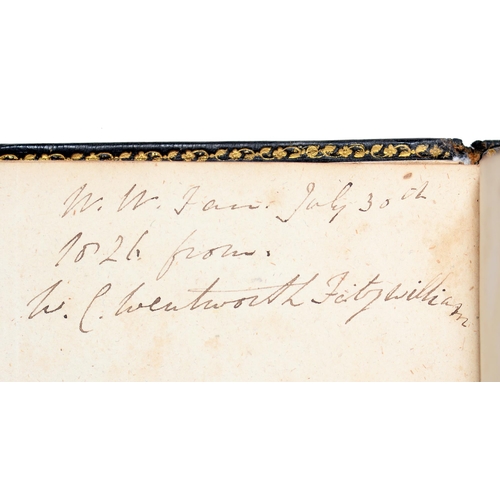 W. W. July 30th
1826 from.
W. C. Wentworth Fitzwilliam